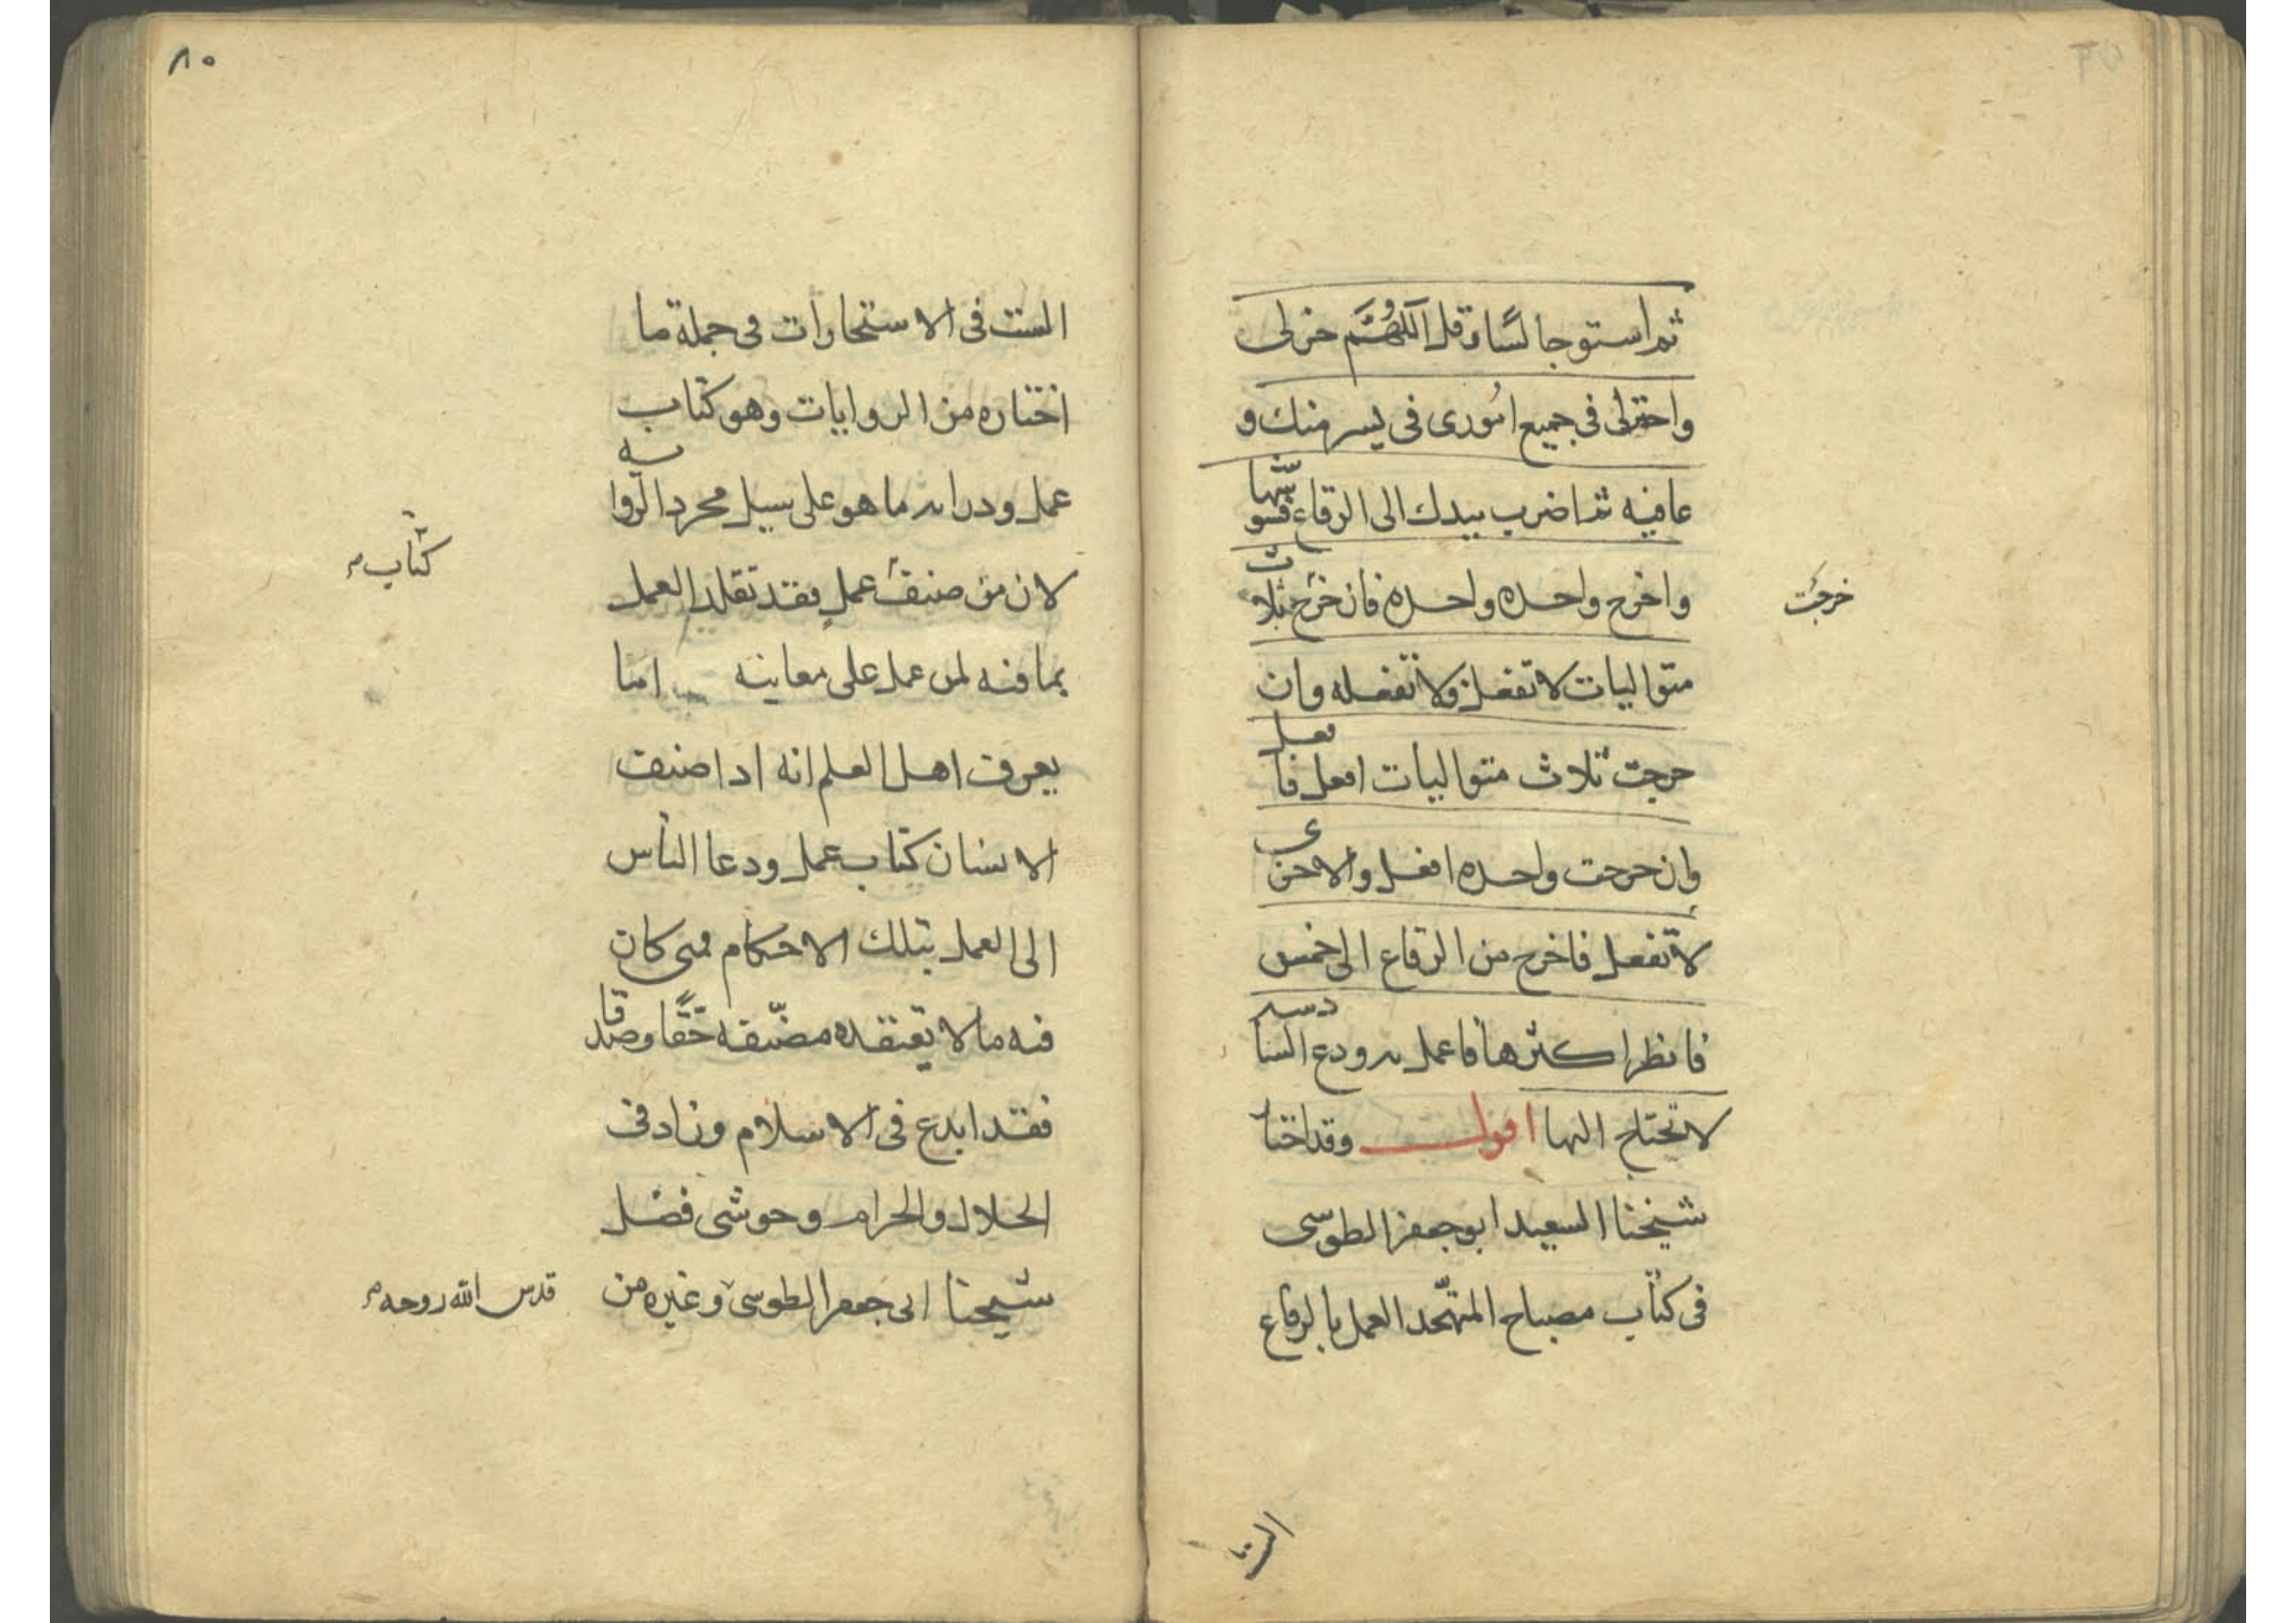 ثم استو جالسًا وقل اَللّهُمَّ خر لى
واختر لى فى جميع امُورى فى يسر منك و
عافيه ثم اضرب بيدك الى الرقاع فشوّشها
واخرج واحده واحده فان خرج ثلاث
خرجَت
متواليات لا تفعل ولا تفعله وان
خرجت ثلاث متواليات افعل فافعل
وان خرجت واحده افعل والاخرى
لا تفعل فاخرج من الرقاع الى خمس
فانظر اكثرها فاعمل به ودع السادسه
لا تحتاج اليها اقول وقد اختا
شيخنا السعيد ابو جعفر الطوسى
فى كتاب مصباح المتهجّد العمل بالرقاع
الست
٨٠
الست فى الاستخارات فى جملة ما
اختاره من الروايات وهو كتاب
عمل ودرايه ما هو على سبيل مجرد الرّوايه
لان من صنّف عملٍ فقد تقلد العمل
كتاب
بما فيه لمن عمل على معانيه اما
يعرف اهل العلم انه اذا صنف
الانسان كتاب عمل ودعا الناس
الى العمل بتلك الاحكام فمتى كان
فيه ما لا يعتقده مصنّفه حَقًّا وصدقا
فقد ابدع فى الاسلام وزاد فى
الحلال والحرام وحوشى فضل
شيخنا ابى جعفر الطوسى وغيره من
قدس الله روحه